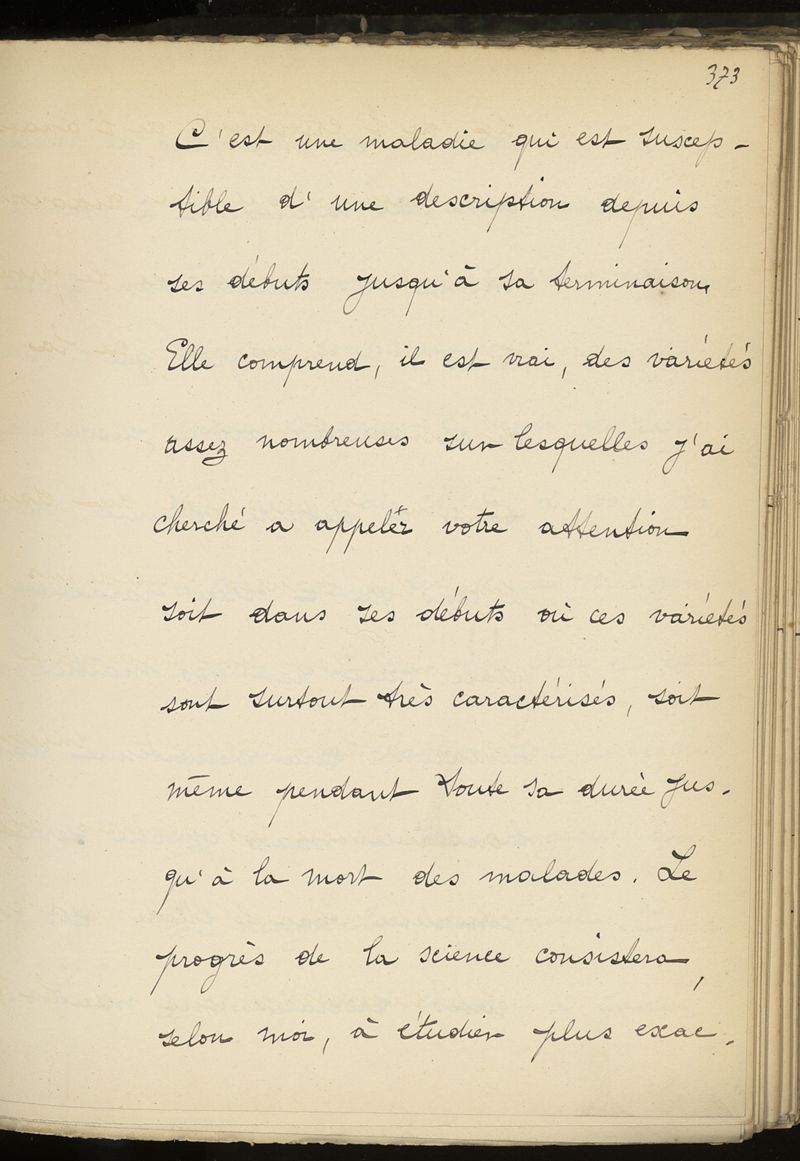 373
C'est une maladie qui est suscep-
tible d'une description depuis
ses débuts jusqu'à sa terminaison.
Elle comprend, il est vrai, des variétés
assez nombreuses sur lesquelles j'ai
cherché a appeler votre attention
soit dans ses débuts où ces variétés
sont surtout très caractérisés, soit
même pendant toute sa durée jus-
qu'à la mort des malades. Le
progrès de la science consistera,
selon moi, à étudier plus exac-